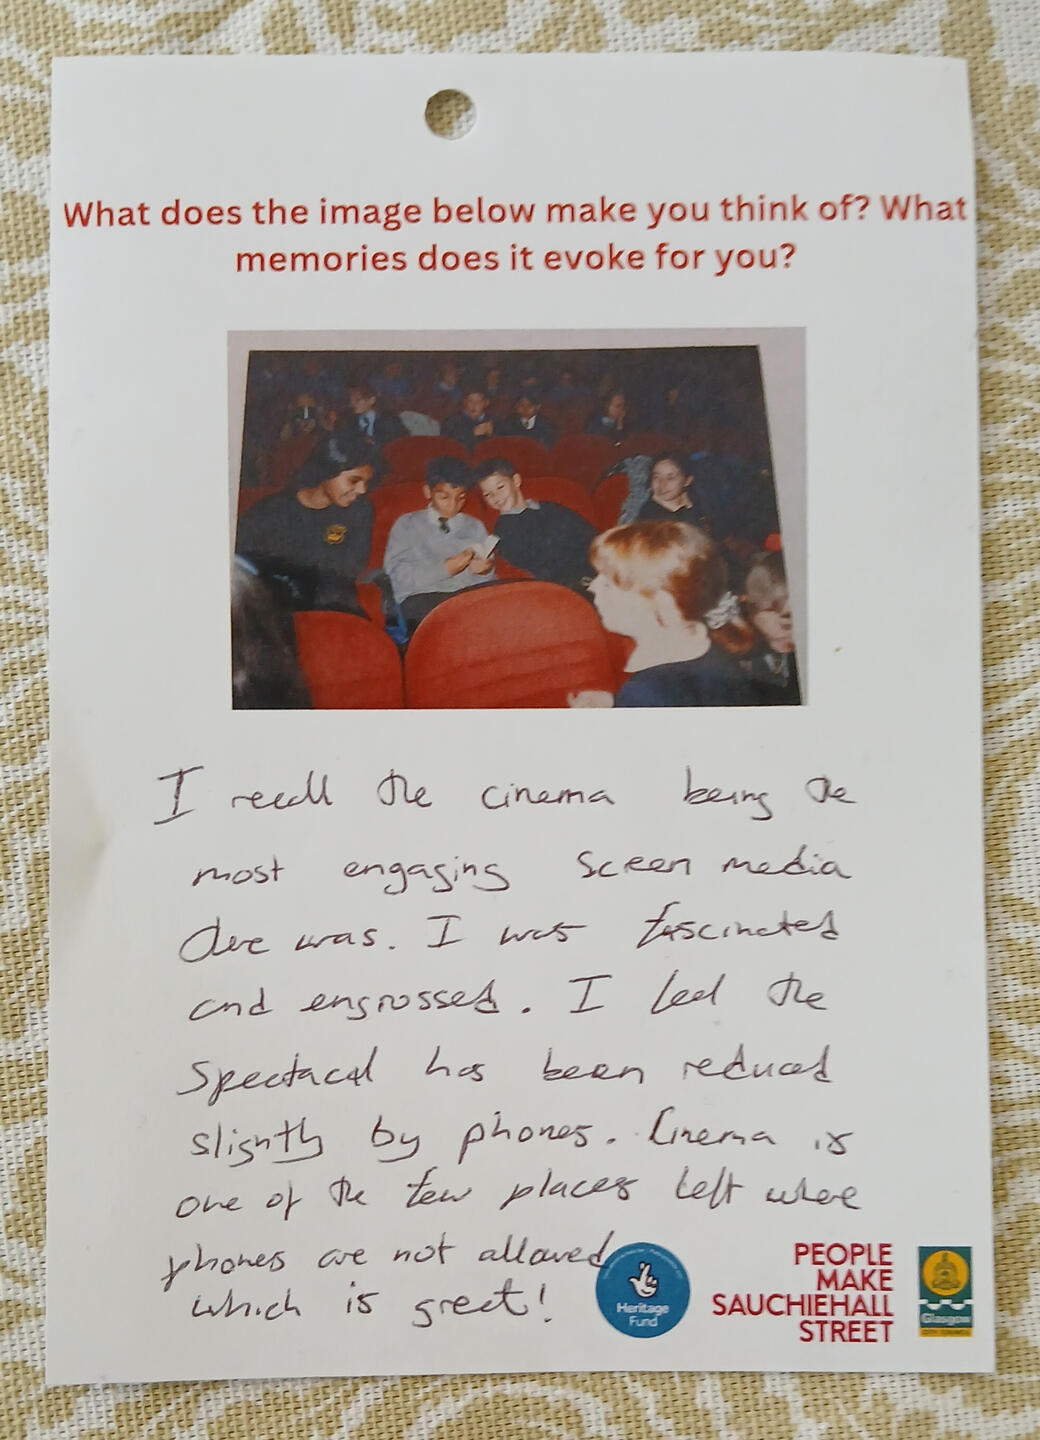 What does the image below make you think of? What
memories does it evoke for you?
I recall the cinema being the
most engaging screen media
there was. I was fascinated
and engrossed. I feel the
spectacal has been reduced
slightly by phones. Cinema is
one of the few places left where
phones are not allowed
which is great!
Heritage
Fund
PEOPLE
MAKE
SAUCHIEHALL
STREET
Glasgow
CITY COUNCIL